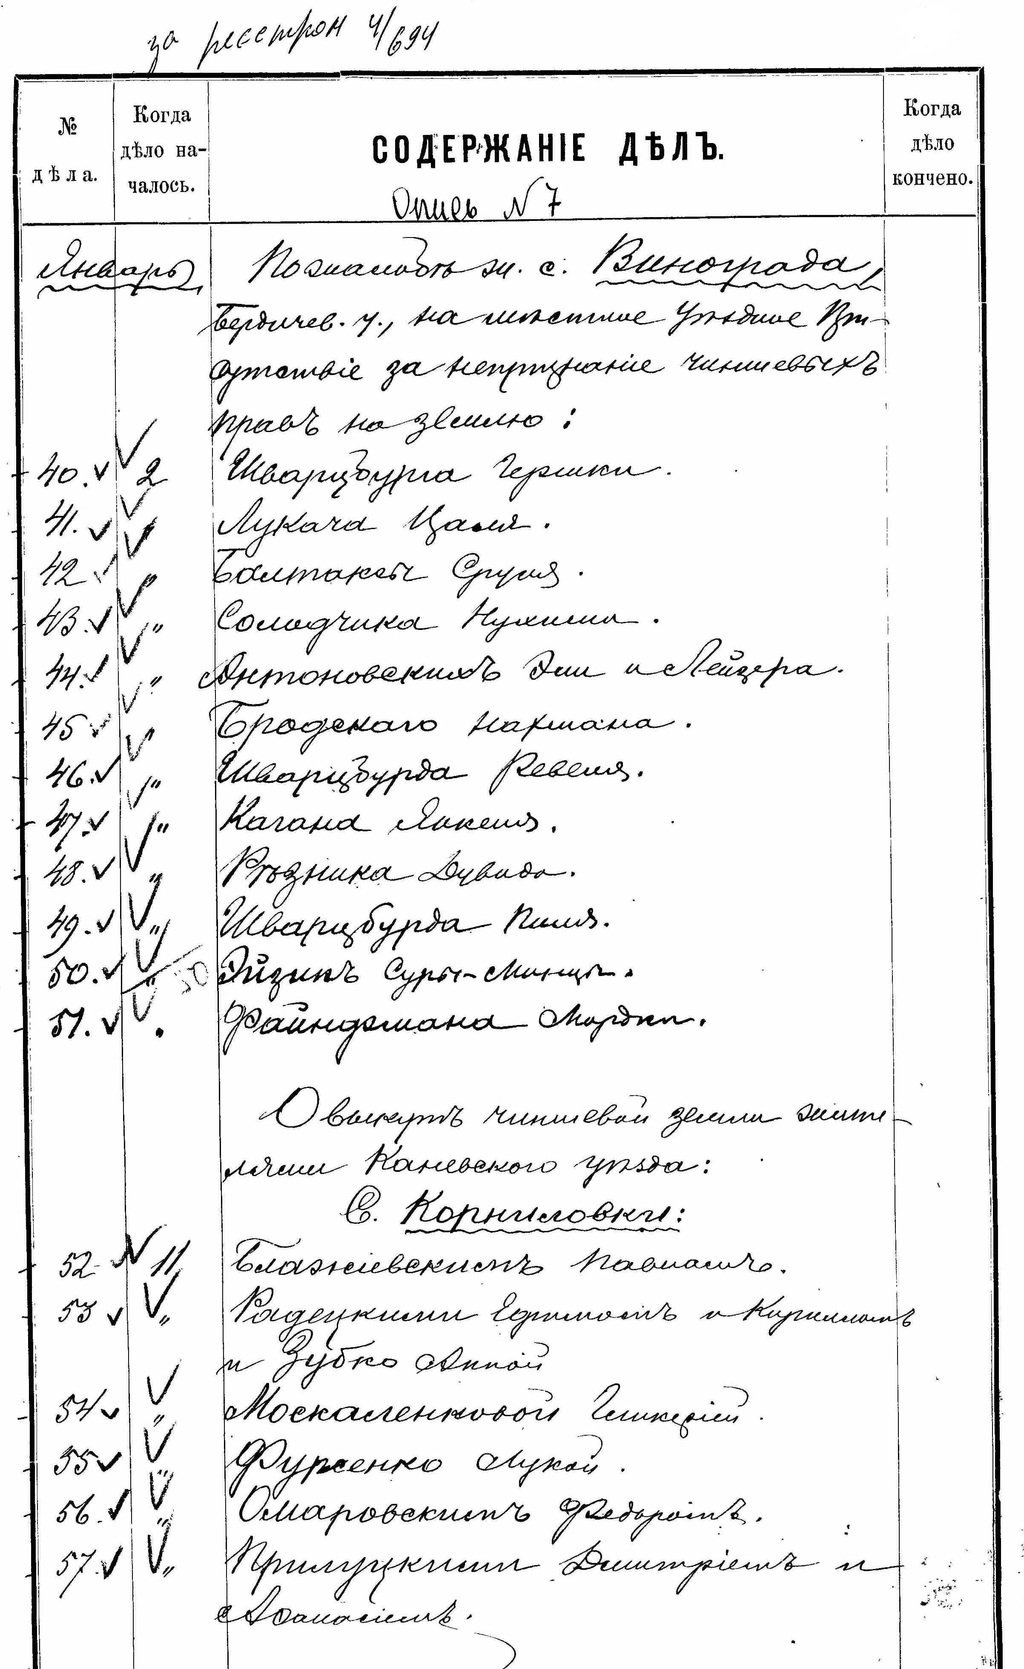 за реестром 4/694
№ дѣла.
Когда дѣло началось.
СОДЕРЖАНІЕ ДѢЛЪ.
Когда дѣло кончено.
Опись N 7
Январь
По жалобѣ ж. с. Винограда,
Бердичев. у., на мѣстное Уѣздное При-
сутствіе за непризнаніе чиншевыхъ
правъ на землю:
40. 2 Шварцбурга Гершки.
41. " Лукача Цаля.
42 " Балтаксы Сруля.
43. " Солодчика Нухима.
44. " Антоновскихъ Эли и Лейзера.
45 " Бродскаго Нахмана.
46. " Шварцбурда Ревеля.
47. " Кагана Янкеля.
48. " Рѣзника Дувида.
49. " Шварцбурда Пиля.
50. " 50 Эйзикъ Суры-Минцы.
51. " Файндмана Мордки.
О выкупѣ чиншевой земли жите-
лями Каневского уѣзда:
С. Корниловки:
52 11 Блажіевскимъ Павломъ.
53 " Радецкими Ефимомъ и Кирилломъ
и Зубко Анной
54 " Москаленковой Гликеріей.
55 " Фурсенко Лукой.
56. " Омаровскимъ Федоромъ.
57. " Прилуцкими Дмитріемъ и
Аѳанасіемъ.